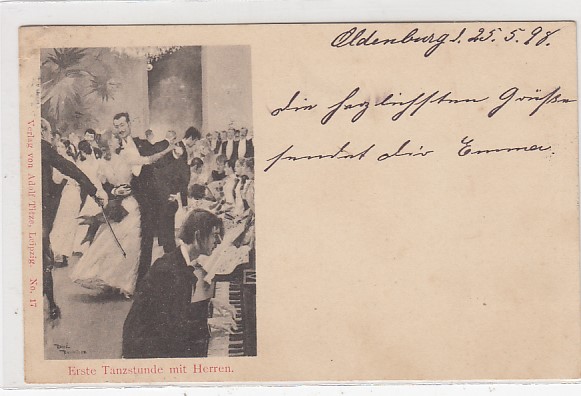 Oldenburg d. 25.5.98.
die herzlichsten Grüße
sendet dir Emma.
Verlag von Adolf Titze, Leipzig. No. 17
Erste Tanzstunde mit Herren.